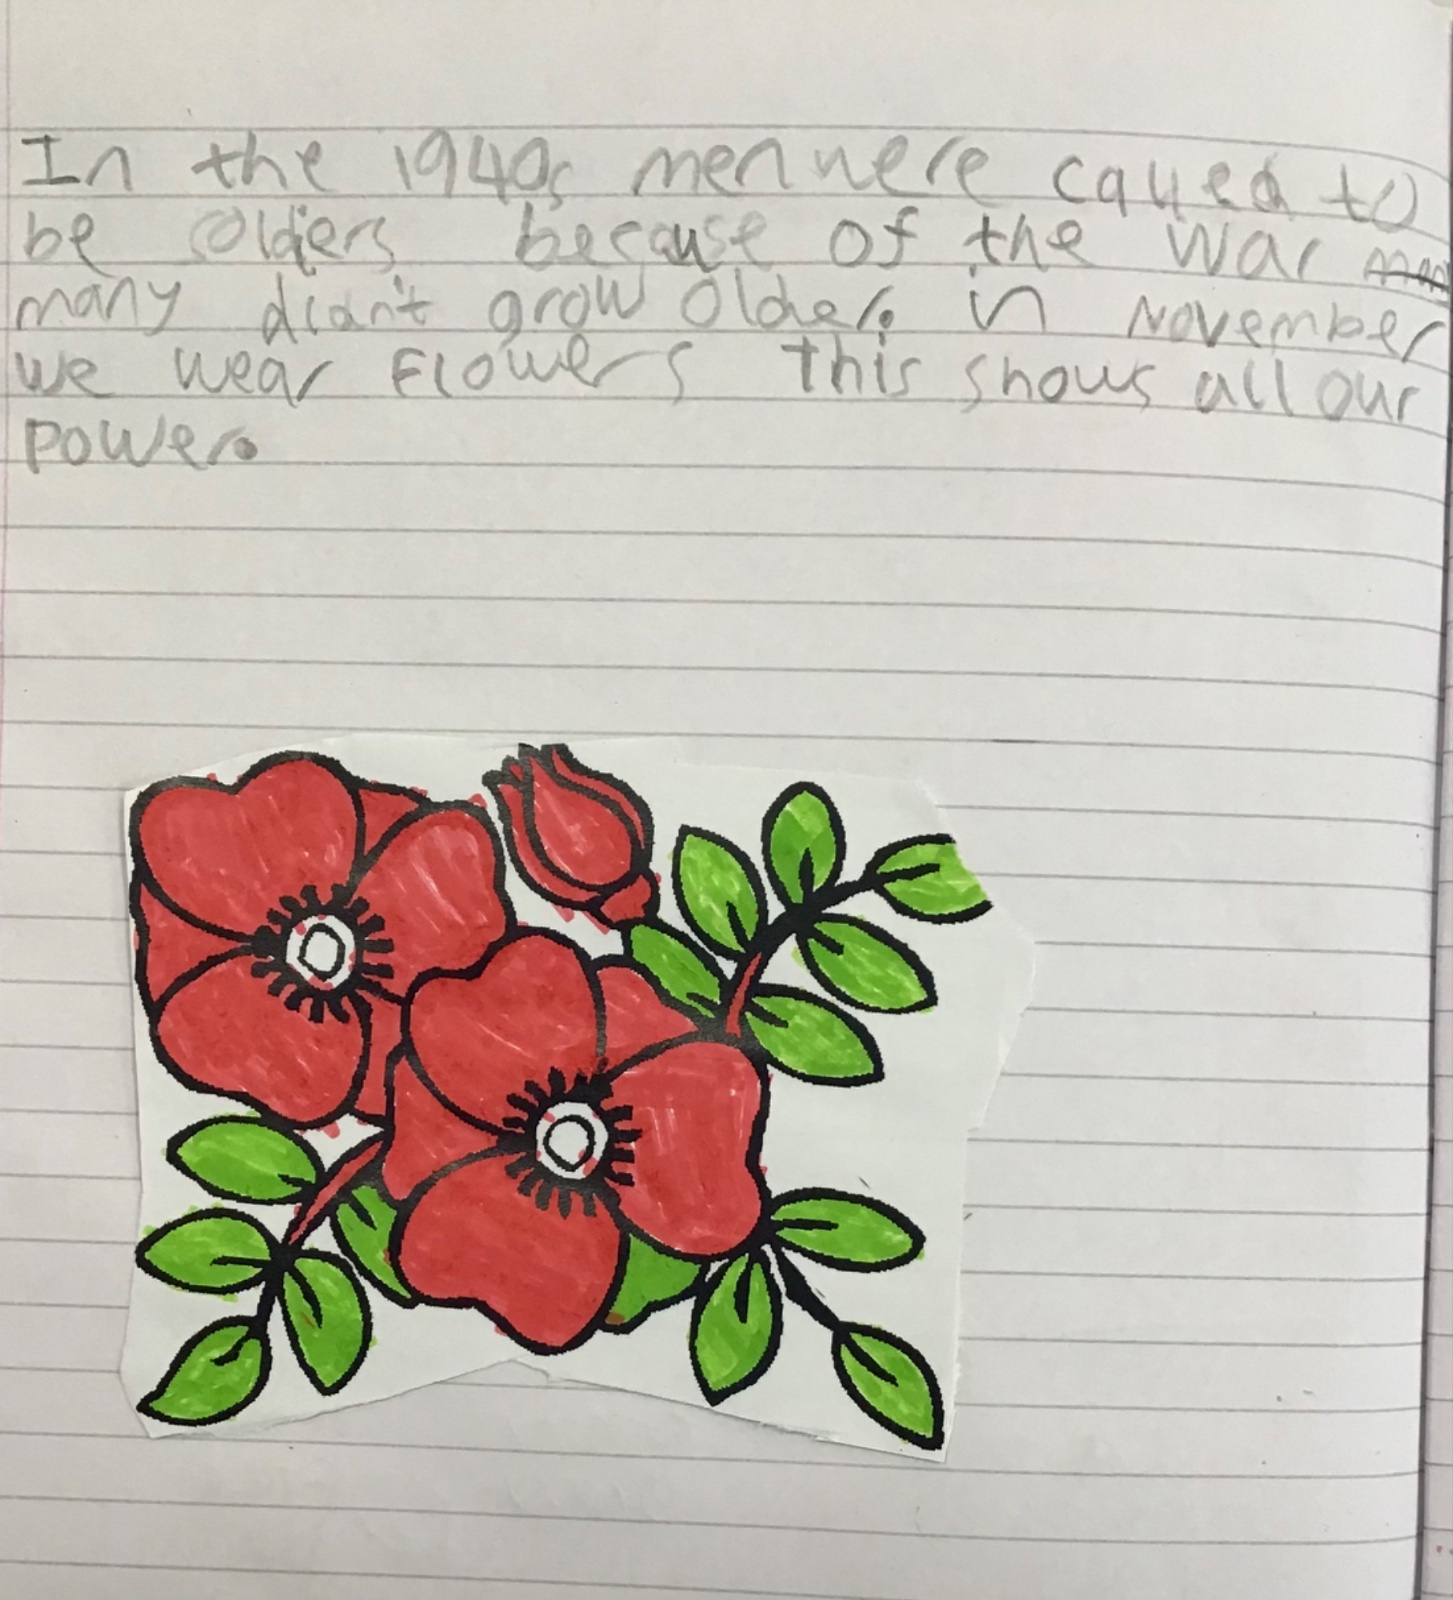 In the 1940s men were called to
be solders because of the war
many didn't grow older. in November
we wear Flowers this shows all our
power.